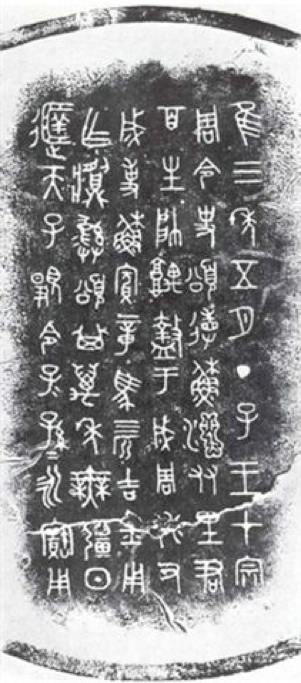 隹三年五月丁巳王才宗
周令史頌省穌姻友里君
百生帥堣盩于成周休又
成事穌賓章馬三匹吉金用
乍䵼彝頌其萬年無疆日
遟天子顯令子=孫=永寶用